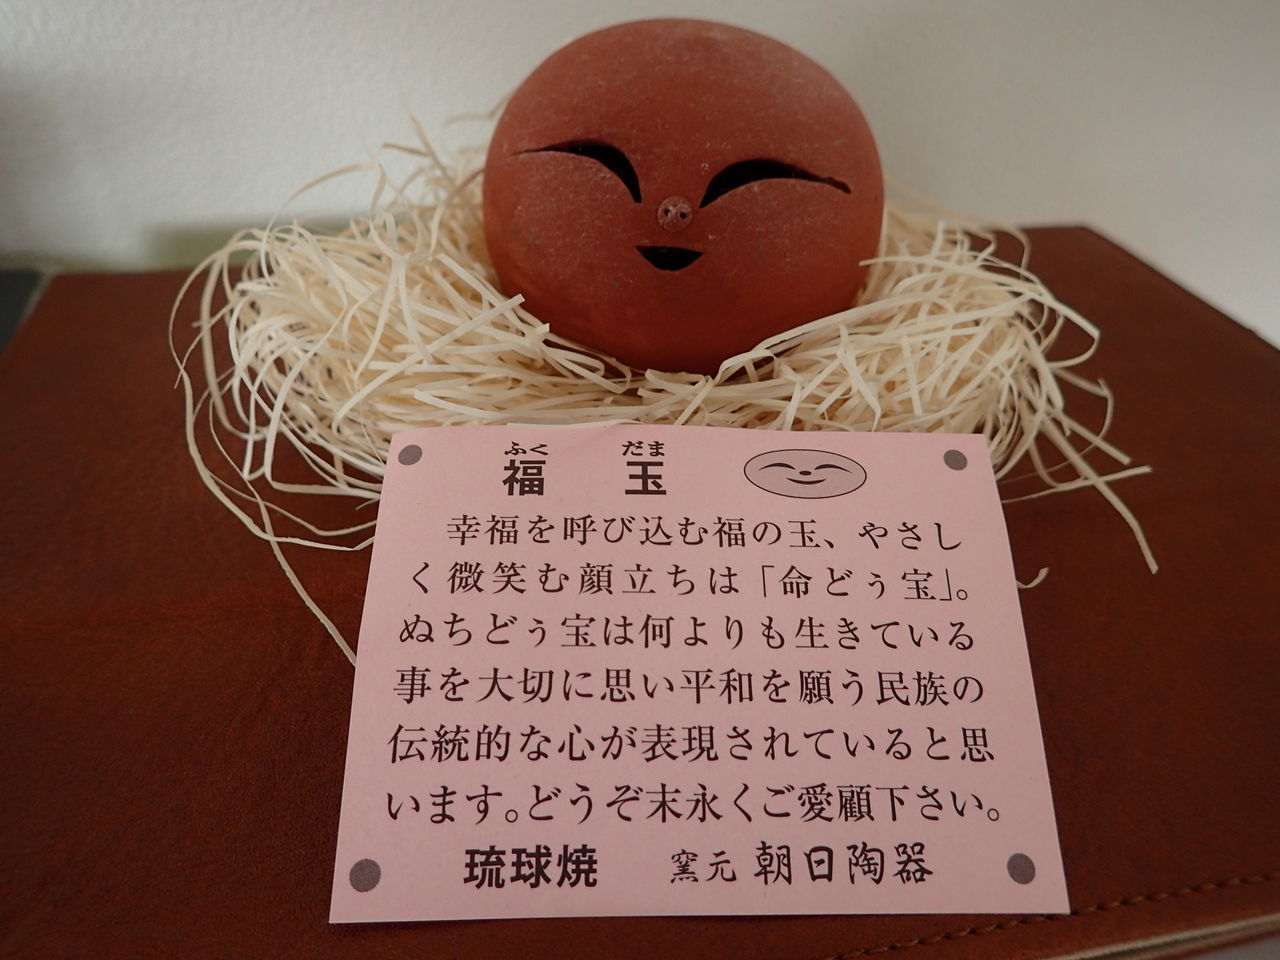 ふく だま
福 玉
幸福を呼び込む福の玉、やさし
く微笑む顔立ちは「命どぅ宝」。
ぬちどぅ宝は何よりも生きている
事を大切に思い平和を願う民族の
伝統的な心が表現されていると思
います。どうぞ末永くご愛顧下さい。
琉球焼 窯元 朝日陶器